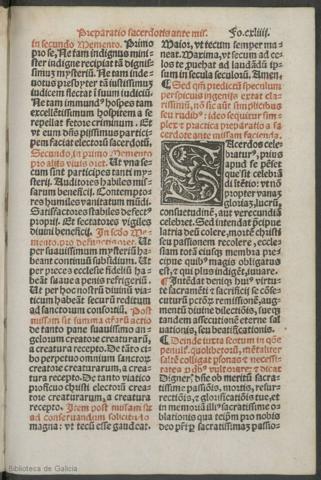 Preparatio sacerdotis ante mis. Fo.cxliiij.
in secundo Memento. Primo
pro se, Ne tam indignus mini=
ster indigne recipiat tã dignis=
simuz mysteriũ. Ne tam inde=
uotus presbyter tã iustissimuz
iudicem flectat i suum iudiciũ.
Ne tam immundᵒ hospes tam
excellẽtissimum hospitem a se
repellat fetore criminum. Et
vt eum dñs pijssimus partici=
pem faciat electorũ sacerdotũ.
Secundo, in primo Memento
pro alijs viuis oret. Ut vna se=
cum sint participes tanti my=
sterij. Auditores habiles mis=
sarum beneficij. Contemptores
humiles vanitatum mũdi.
Satisfactores stabiles defectᵒ
proprij. Et sectatores vigiles
diuini beneficij. In scdo Me=
mento, pro defunctis oret. Ut
per suauissimum mysteriũ ha=
beant continuũ subsidium. Ut
per preces ecclesie fidelis ha=
beãt suaue a penis refrigeriũ.
Ut per hoc nostrũ diuinũ via=
ticum habeãt securũ reditum
ad sanctorum consortiũ. Post
missam sit summa gr̃arũ actio
de tanto pane suauissimo an=
gelorum creatore creaturarũ,
a creatura recepto. De tãto ci=
bo perpetuo omnium sanctorũ
creatore creaturarum, a crea=
tura recepto. De tanto viatico
proficuo christi electorũ crea=
tore creaturarum, a creatura
recepto. Item post missam sit
ad conseruandum solicitudo
magna: vt tecũ esse gaudeat.
Maior, vt tecum semper ma=
neat. Maxima, vt secum ad ce=
los te puehat ad laudãdũ ip=
sum in secula seculorũ. Amen.
¶ Sed qm̃ predictũ speculum
perspicuis ingenijs extat clarissimũ,
nõ sic aũt simplicibus
seu rudibᵒ: ideo sequitur sim=
plex ⁊ practica preparatio a sa=
cerdote ante missam facienda.
SAcerdos cele=
braturᵒ, prius
apud se pẽset
que sit celebrã
di itẽtio: vt nõ
propter vanaz
gloriaz, lucrũ,
consuetudinẽ, aut verecundiã
celebret. Sed intendat prĩcipue
latria deũ colere, morẽ christi
seu passionem recolere, eccle=
siam totã eiusqz membra pre=
cipue quibᵒ magis obligatus
est, ⁊ qui plus indigẽt, iuuare.
¶ Intẽdat deniqz huiᵒ virtu=
te sacramẽti ⁊ sacrificij se cõse=
cuturũ pctõrz remissionẽ, aug=
mendũ diuine dilectiõis, sueqz
tandem assecutionẽ eterne sal
uationis, seu beatificationis.
¶ Deinde iuxta scotum in q̃õe
penulᵗ. quolibetorũ, mẽtaliter
certe colligat psonas ⁊ necessi=
tates p qbᵒ vult orare: ⁊ dicat
Dignerᵗ dñe ob meritũ sacra=
tissime passiõis, mortis, resur=
rectiõis, ⁊ glorificatiõis tue, et
in memoriã illiᵒ sacratissime o=
blationis qua teipm̃ pro nobis
sacramentũ sacratissimaz passio=
Biblioteca de Galicia